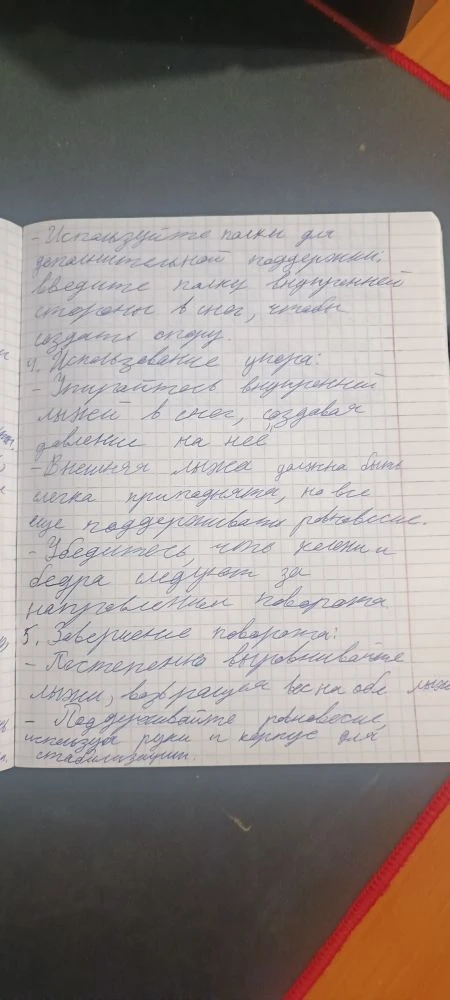 - Используйте палки для
дополнительной поддержки:
введите палку внутренней
стороны в снег, чтобы
создать опору.
4. Использование упора:
- Упирайтесь внутренней
лыжей в снег, создавая
давление на неё
- Внешняя лыжа должна быть
слегка приподнята, но все
еще поддерживать равновесие.
- Убедитесь, что колени и
бедра следуют за
направлением поворота.
5. Завершение поворота:
- Постепенно выравнивайте
лыжи, возвращая вес на обе лыжи
- Поддерживайте равновесие,
используя руки и корпус для
стабилизации.